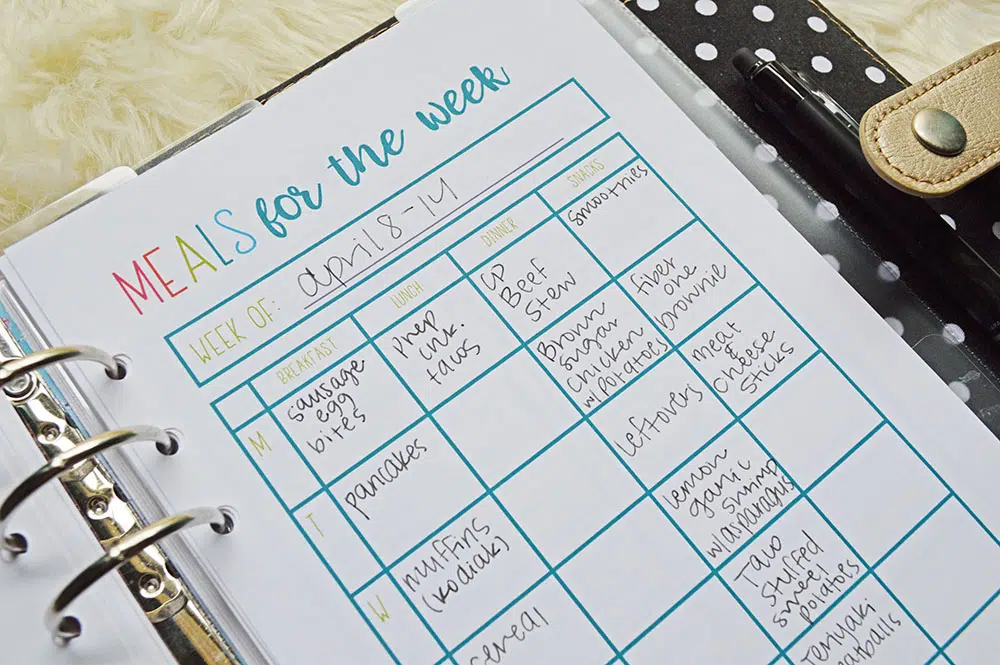 MEALS for the week
WEEK OF: april 8-14
BREAKFAST LUNCH DINNER SNACKS
M
sausage
egg
bites
prep
tacos
CP
Beef
Stew
smoothies
T
pancakes
Brown
sugar
chicken
w/potatoes
Fiber
one
brownie
W
muffins
(kodiak)
leftovers
meat
&
cheese
sticks
cereal
lemon
garlic
shrimp
w/asparagus
Taco
stuffed
sweet
potatoes
Teriyaki